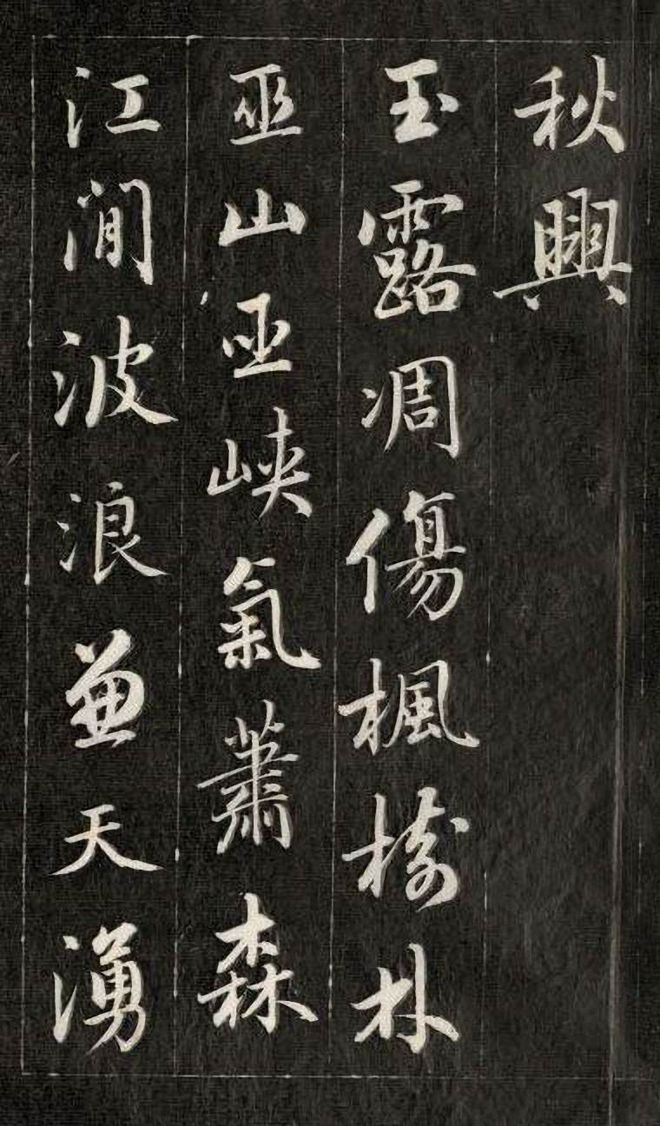 秋興
玉露凋傷楓樹林
巫山巫峽氣蕭森
江間波浪兼天湧